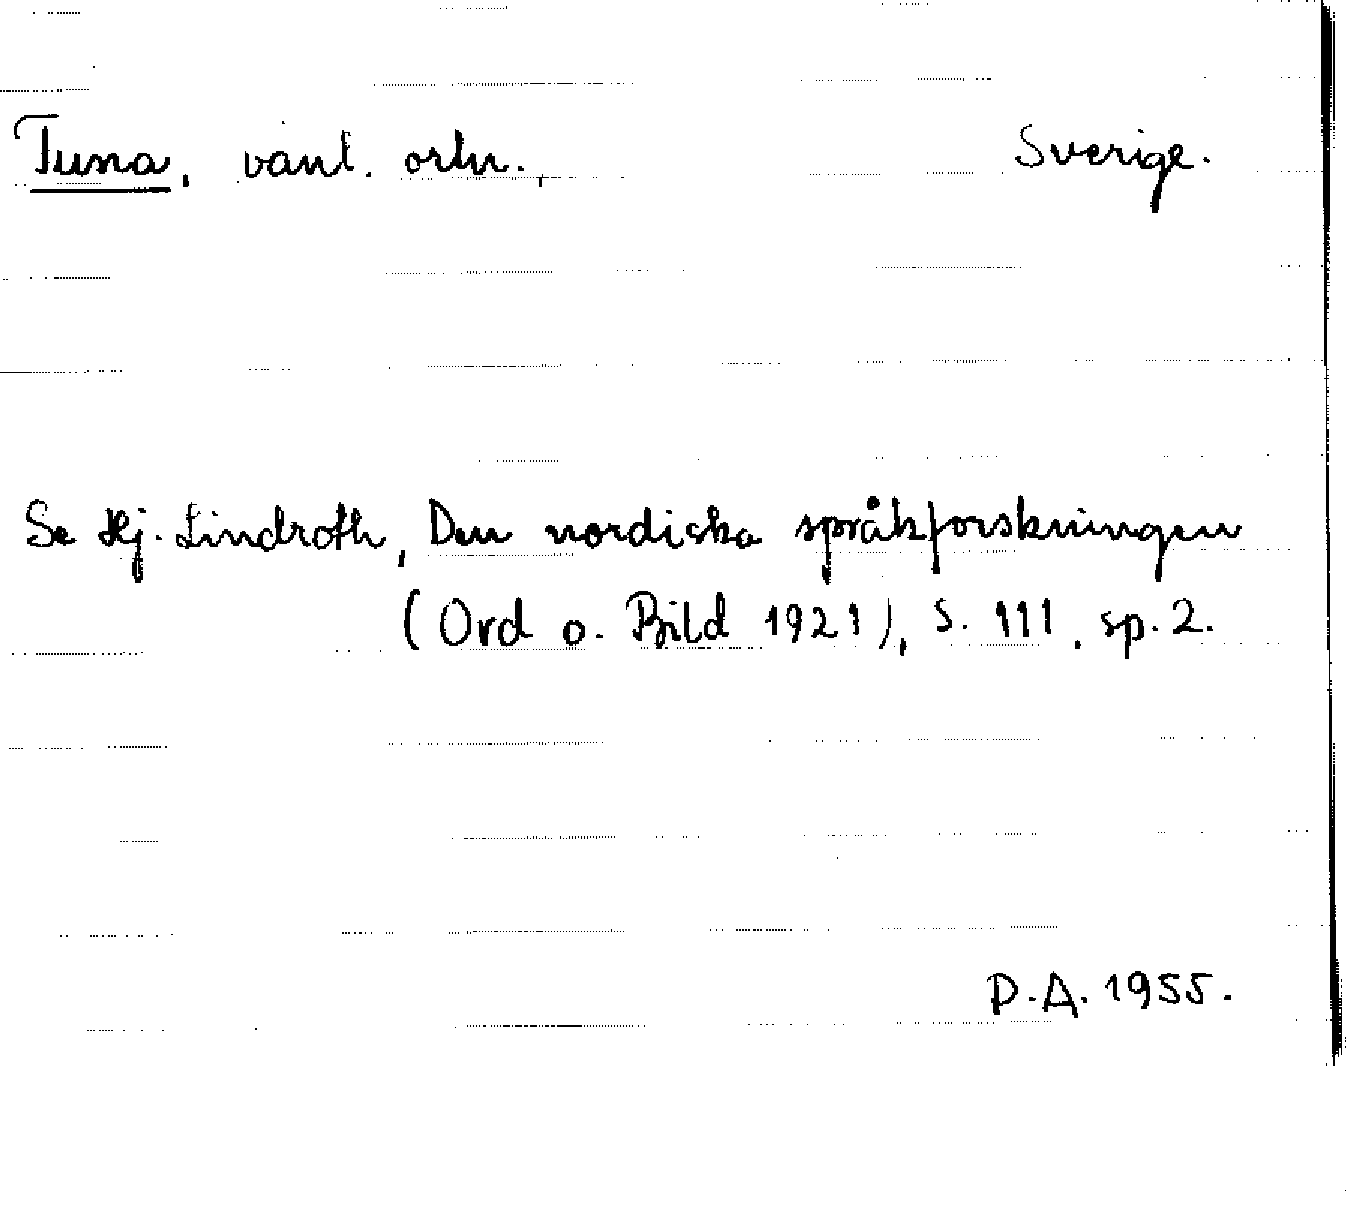 Tuna, vanl. ortn., Sverige.
Se Hj. Lindroth, Den nordiska språkforskningen
(Ord o. Bild 1921), s. 111, sp. 2.
D.A. 1955.